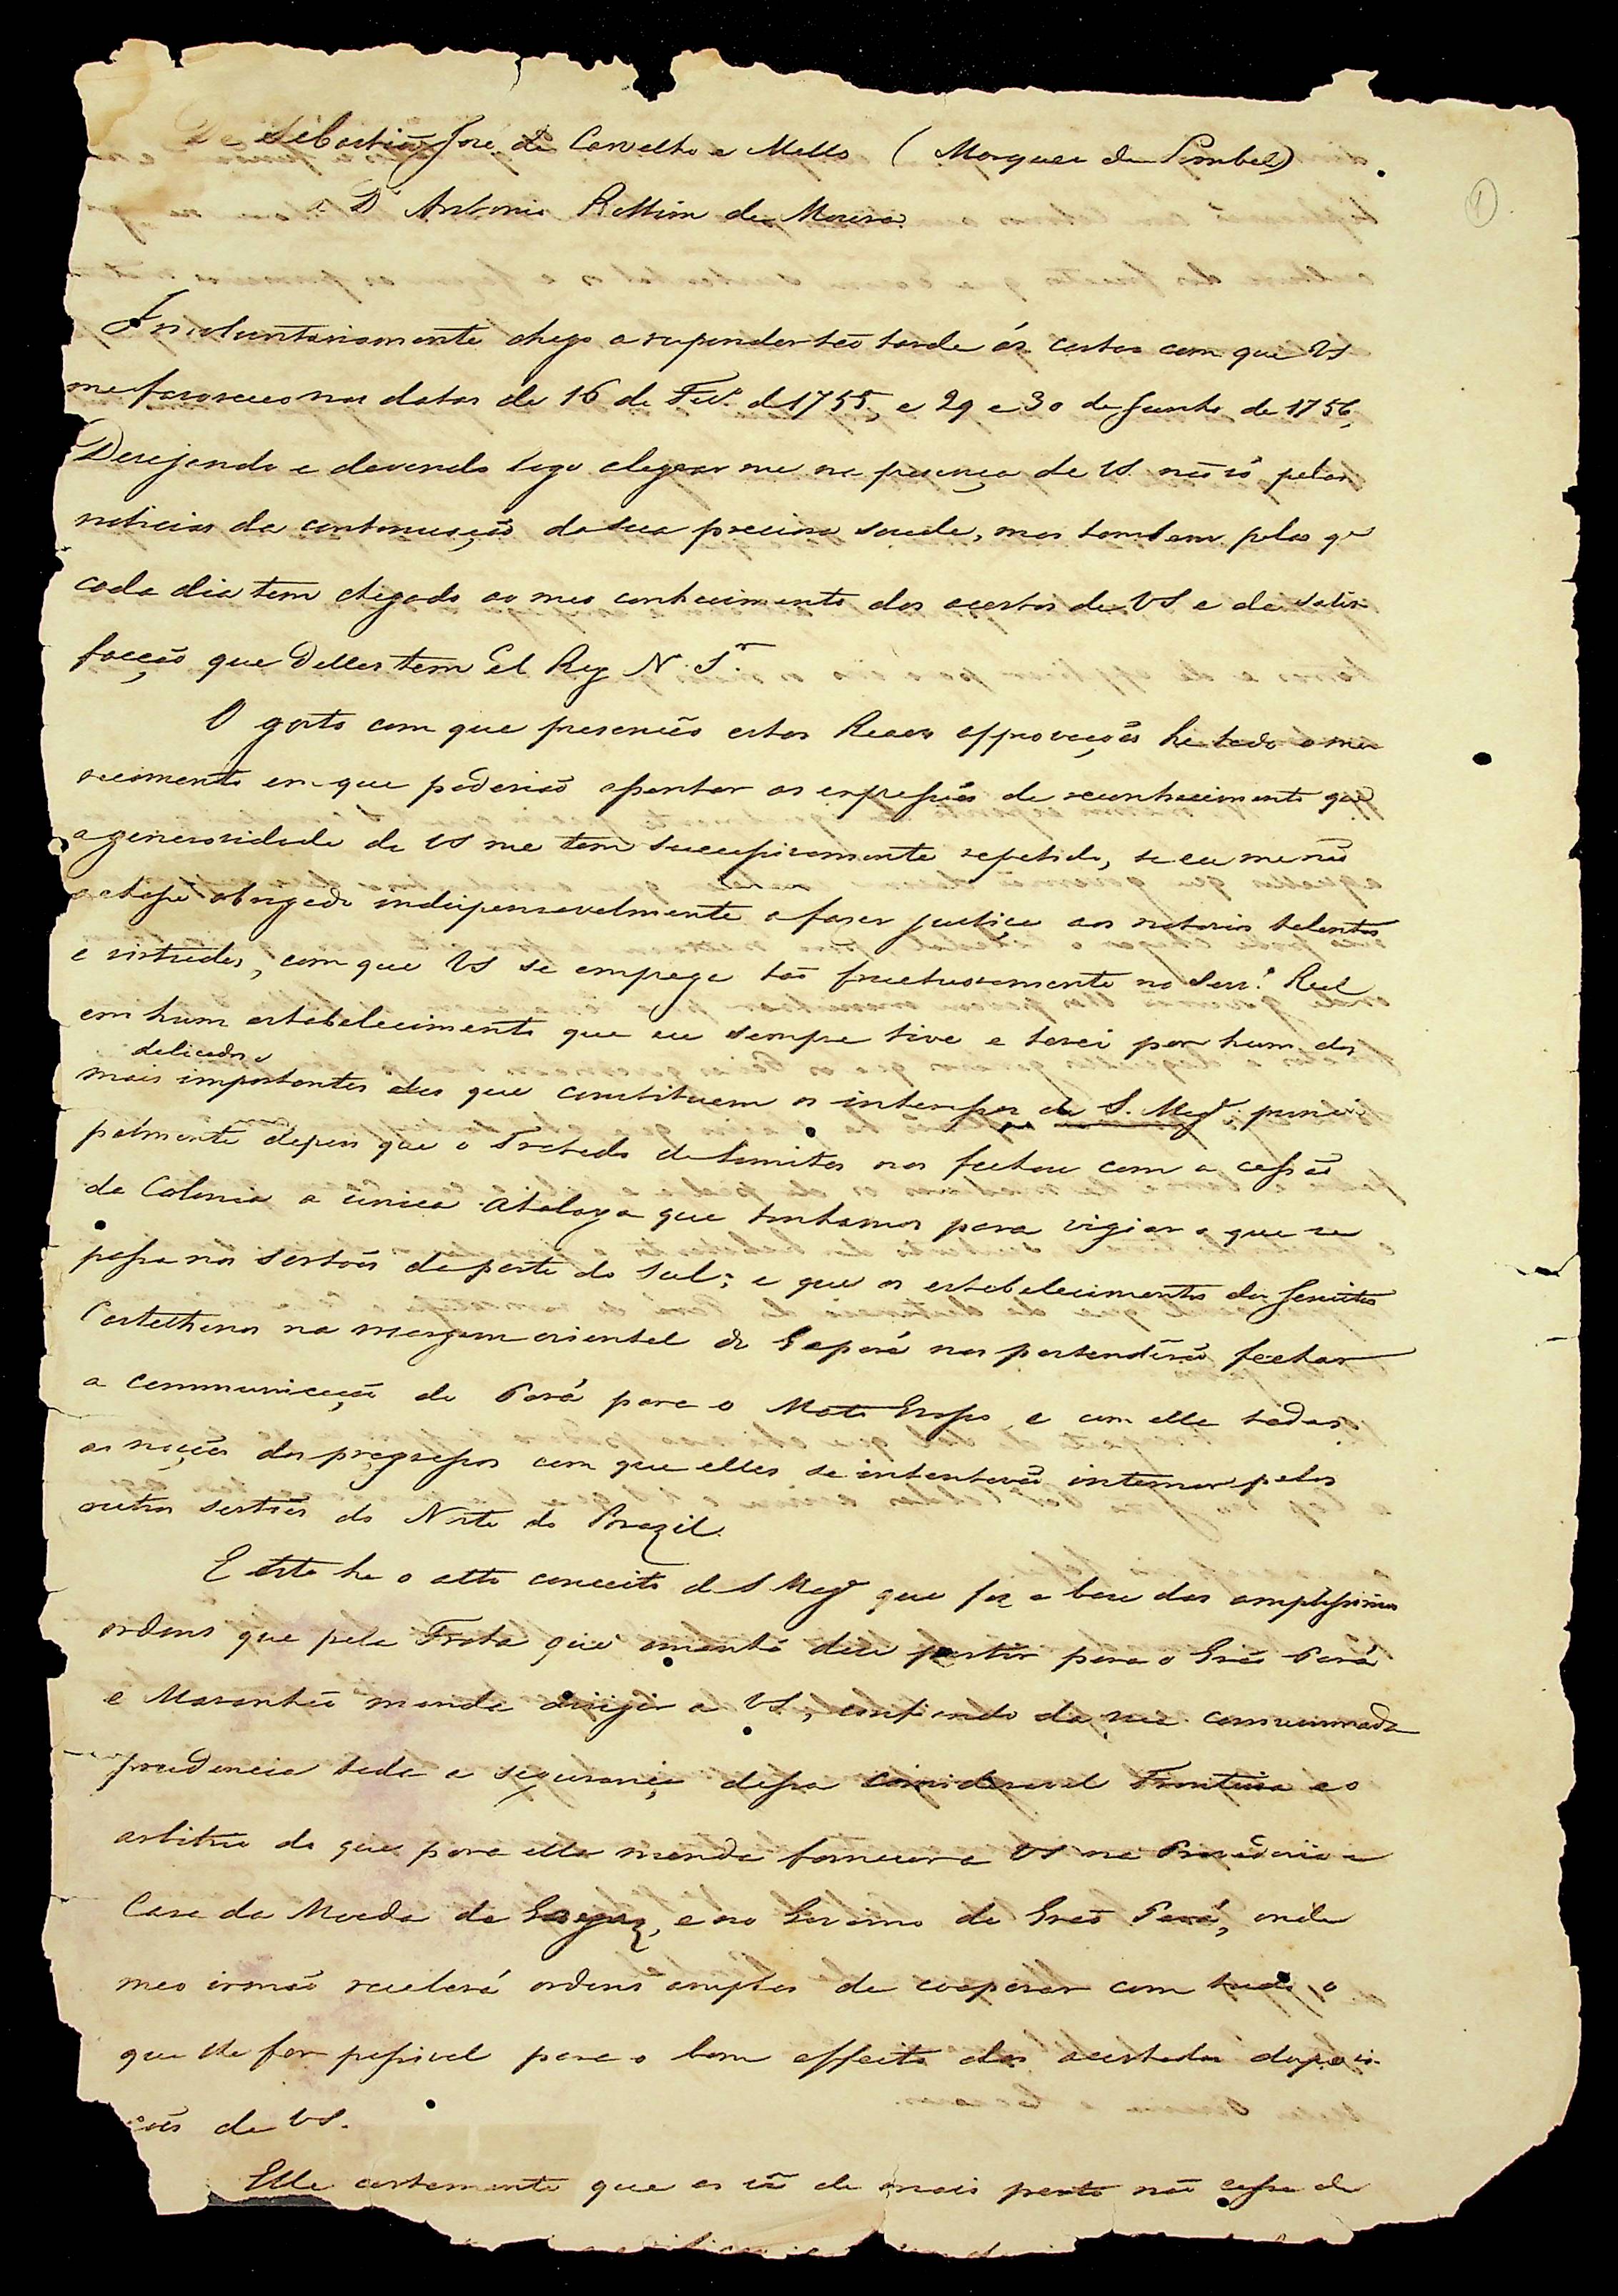 De Sebastião José de Carvalho e Mello (Marquez de Pombal)
a D. Antonio Rollim de Moura.
1
Involuntariamente chego a responder tão tarde ás cartas com que VS
me favoreceo nas datas de 16 de Fev.º de 1755, e 29 e 30 de Junho de 1756,
Desejando e devendo logo alegrar me na presença de VS. não só pelas
noticias da continuação da sua preciosa saude, mas tambem pelas q̃
cada dia tem chegado ao meu conhecimento dos acertos de VS e da satis-
facção que delles tem El Rey N. S.r
O gosto com que presenceio estas Reaes approvações he todo o me-
recimento em que poderião assentar as expressões de reconhecimento que
a generosidade de VS me tem successivamente repetido, se eu me não
achasse obrigado indispensavelmente a fazer justiça aos notorios talentos
e virtudes, com que VS se emprega tão fructuosamente no Serv.º Real
em hum estabelecimento que eu sempre tive e terei por hum dos
delicados e
mais importantes dos que constituem os interesses de S. Mag.e; princi-
palmente depois que o Tratado de Limites nos fechou com a cessão
da Colonia a unica atalaya que tinhamos para vigiar o que se
passa nos sertões da parte do Sul; e que os estabelecimentos dos Jesuitas
Castelhanos na margem oriental do Guaporé nos pertenderão fechar
a communicação do Pará para o Mato Grosso, e com ella todas
as noções dos progressos com que elles se intentavão internar pelos
outros sertões do Norte do Brazil.
E este he o alto conceito de S Mag.e que fez a base das amplissimas
ordens que pela Frota que amanhã deve partir para o Grão Pará
e Maranhão manda dirigir a VS, confiando da sua consummada
prudencia toda a segurança dessa consideravel Fronteira e o
arbitrio do que para ella manda fornecer a VS na Provedoria e
Casa da Moeda de Goyaz, e no Governo do Grão Pará, onde
meo irmão receberá ordens amplas de cooperar com tudo o
que lhe for possivel para o bom effeito das acertadas dispozi-
ções de VS.
Elle certamente que as vê de mais perto não cessa de